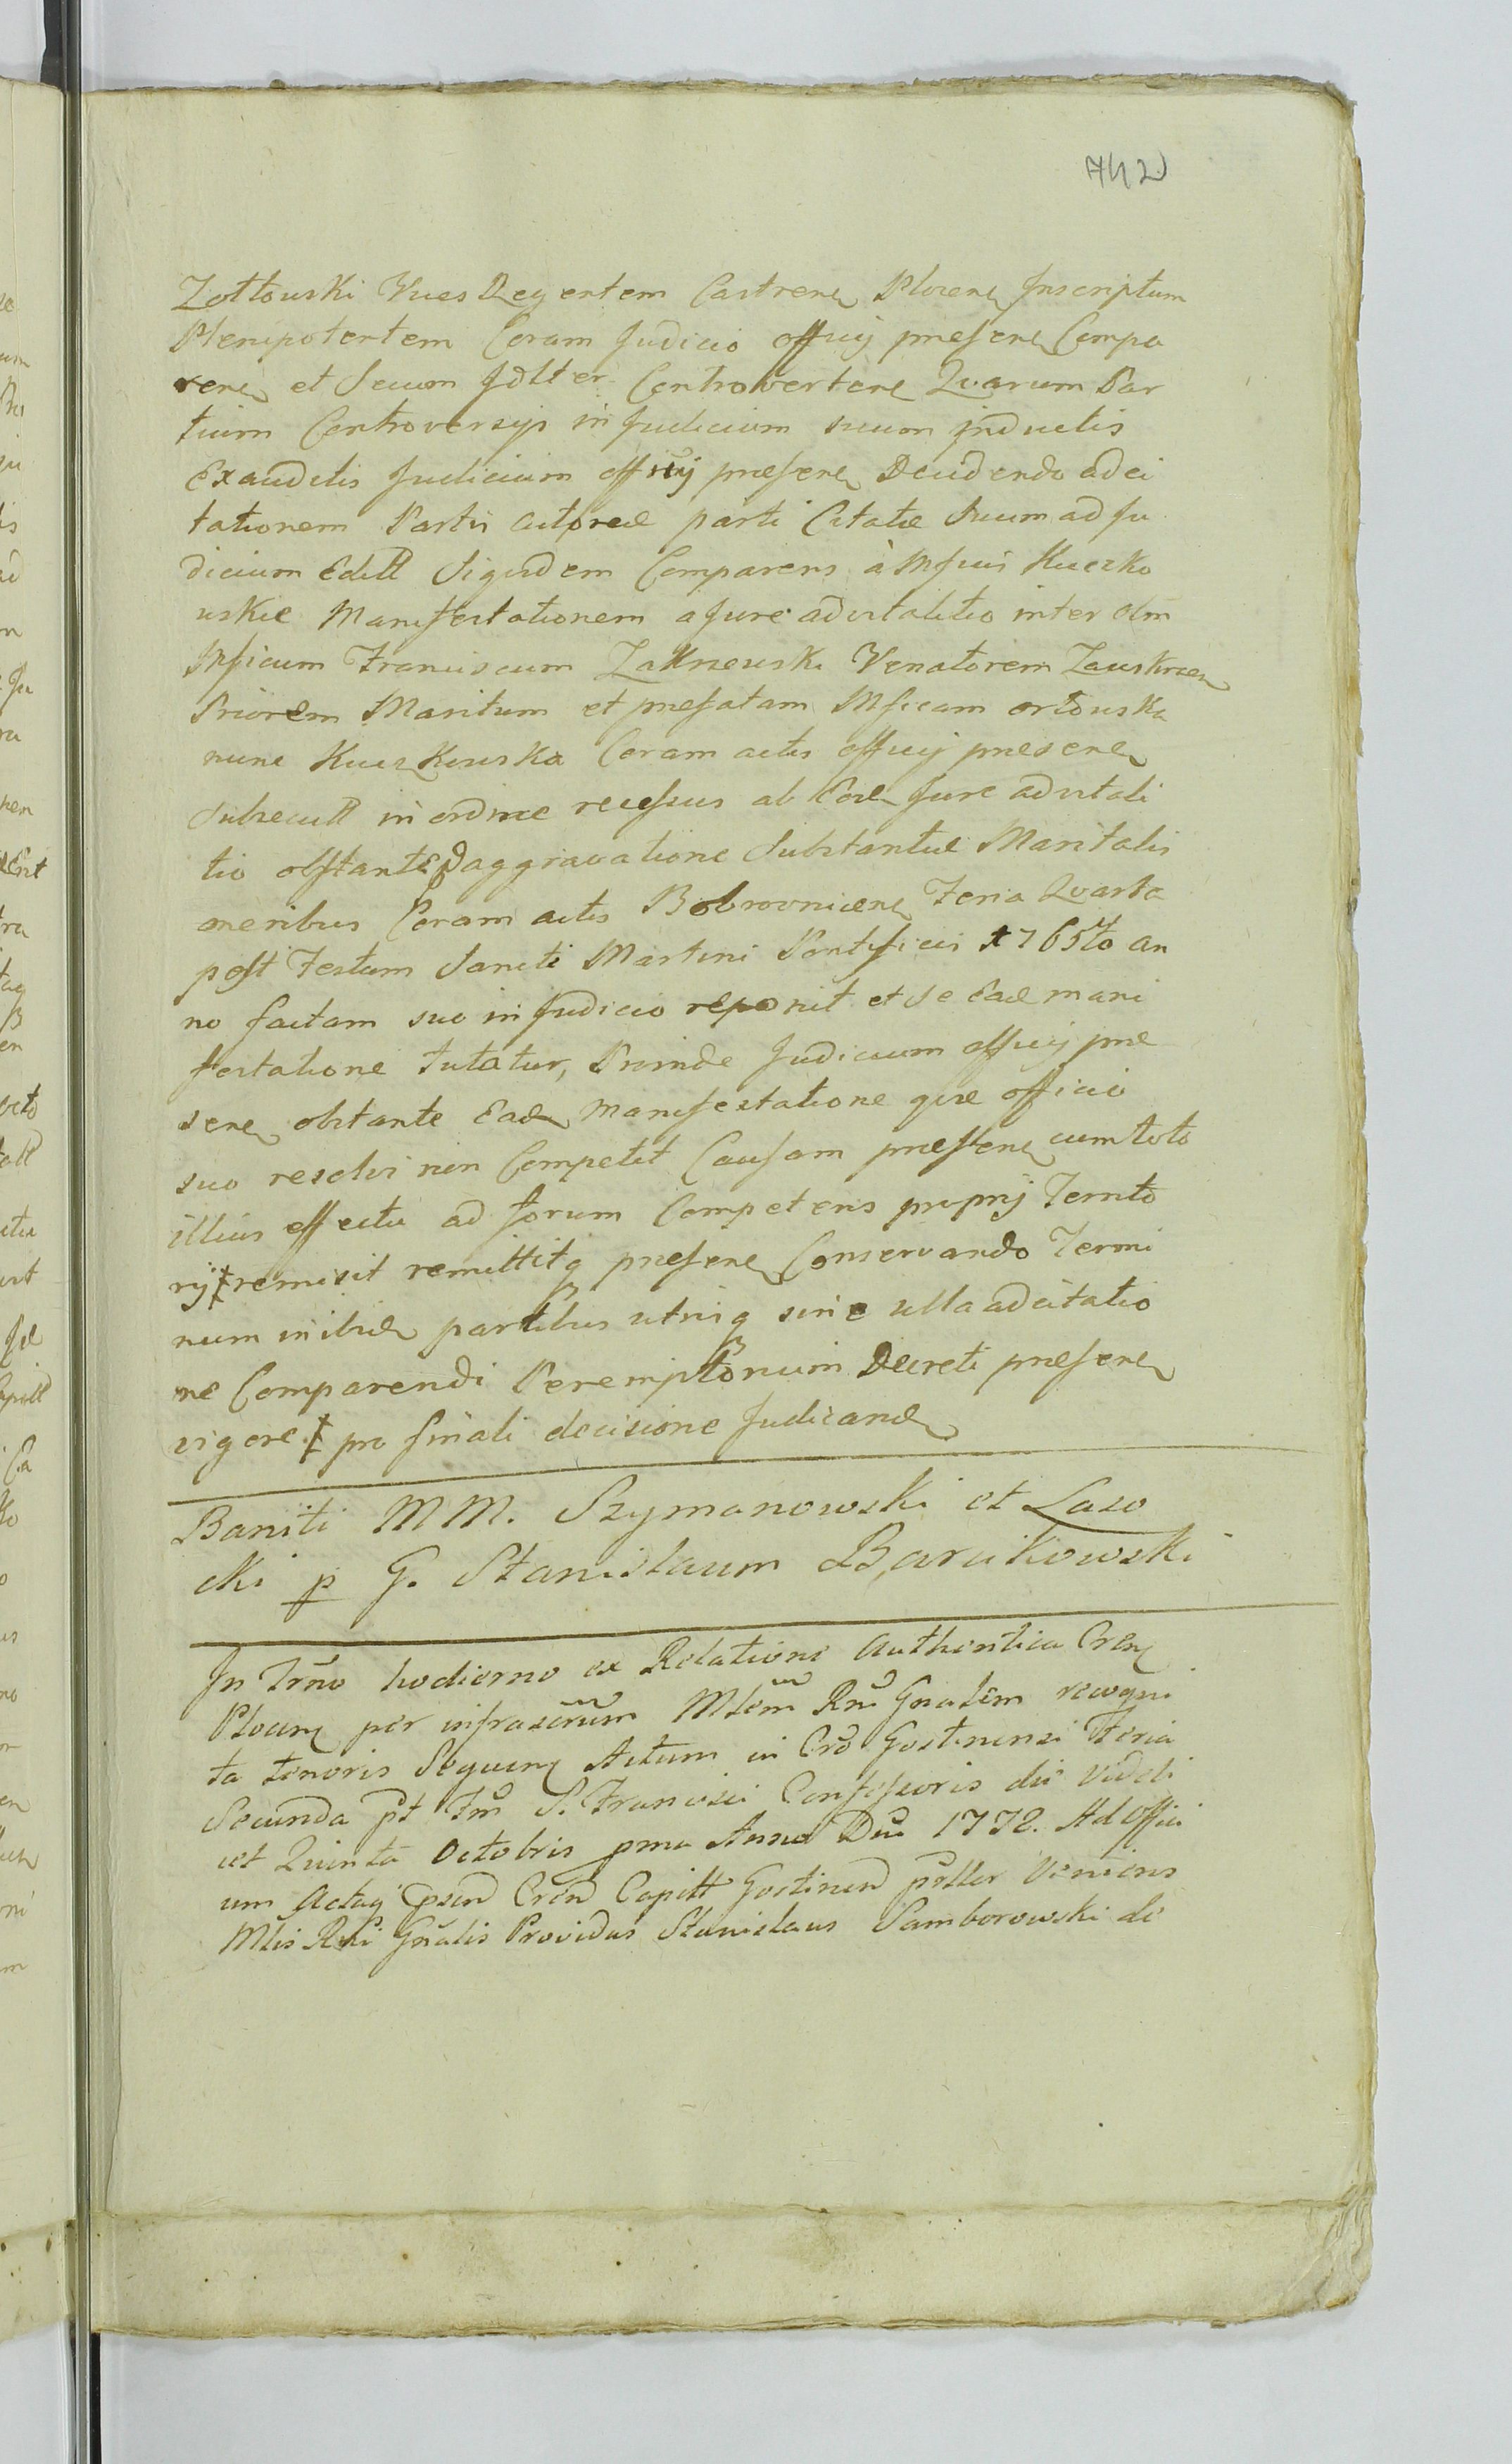 742
Zołtouski Vices Regentem Castrens Plocens Inscriptum
Plenipotentem Coram Judicio officij præsens Compa
rens et Secum Jdlter Controvertens Quarum Par
tium Controversijs in Judicium suum inductis
Exauditis Judicium officij præsens Decidendo ad ci
tationem Partis Actoreæ parti Citatæ Suum ad Ju
dicium Editt Siquidem Comparens à Mficis Kuczko
uskie Manifestationem a Jure advitalitio inter olim
Mficum Franciscum Zakrzeuski Venatorem Zauskrzen
Priorem Maritum et præfatam Mficam ortouska
nunc Kuczkouska Coram actis officij præsens
Subsecutt in ordine recessus ab Eod Jure advitali
tio obstante aggravatione Substantiæ Maritalis
oneribus Coram actis Bobrovnicens Feria Quarta
post Festum Sancti Martini Pontificis 1765to an
no factam suo in Judicio reponit et se Ead mani
festatione tutatur, Proinde Judicium officij præ
sens obstante Ead Manifestatione quæ officio
suo resolvi non Competit Causam præsens cum toto
illius effectu ad forum Competens proprij Territo
rij remisit remittitq præsens Conservando Termi
num inibid partibus utrisq sine ulla adcitatio
ne Comparendi Peremptorium Decreti præsens
vigore pro finali decisione Judicand
Baniti M M. Szymanowski et Laso
cki p G. Stanislaum Barcikowski
In Trno hodierno ex Relatione Authentica Cren
Plocen per infrascrum Mlem Rni Gnalem recogni
ta tenoris Sequen Actum in Cro Gostinensi Feria
Secunda pt Fm S. Francisci Confessoris die Videli
cet Quinta Octobris pma Anno Dni 1772. Ad Offici
um Actaq psen Cren Capitt Gostinen psller Veniens
Mlis Rni Gnalis Providus Stanislaus Samborowski de